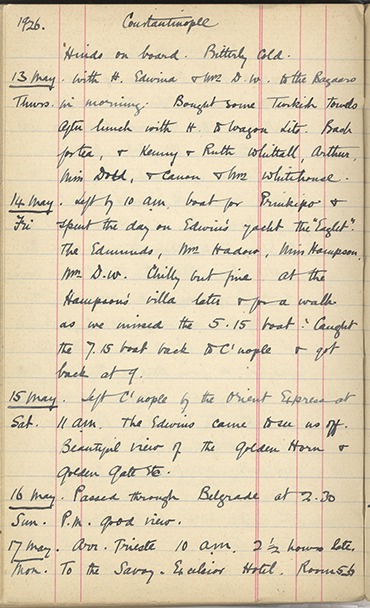 1926. Constantinople
"Hinds on board. Bitterly Cold.
13 May. With H. Edwina & Mrs D.W. to the Bazaars
Thurs. in morning. Bought some Turkish Towels
After lunch with H. to Wagon Lits. Back
for tea, & Kenny & Ruth Whittall, Arthur,
Miss Dodd, & Canon & Mrs Whitehouse.
14 May. Left by 10 am. boat for Prinkipo &
Fri spent the day on Edwin's yacht the "Eaglet".
The Edmunds, Mrs Hadow, Miss Hampson,
Mrs D.W. Chilly but fine at the
Hampson's villa later & for a walk
as we missed the 5.15 boat. Caught
the 7.15 boat back to C'nople & got
back at 9.
15 May. Left C'nople by the Orient Express at
Sat. 11 am. The Edwins came to see us off.
Beautiful view of the Golden Horn &
Golden Gate Etc.
16 May. Passed through Belgrade at 2.30
Sun. P.M. good view.
17 May. Arr. Trieste 10 am. 2½ hours late.
Mon. To the Savoy-Excelsior Hotel. Room 56